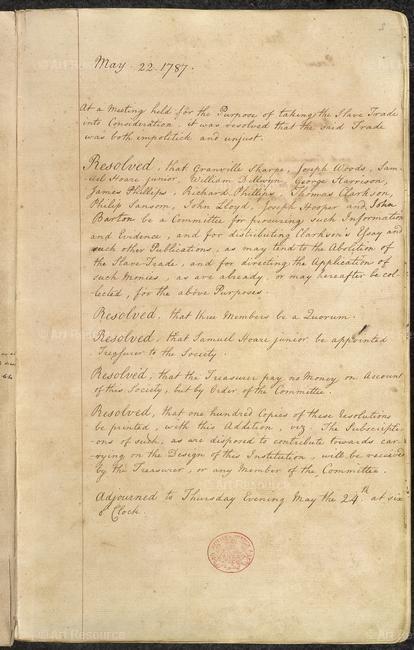 May 22 1787.
At a Meeting held for the Purpose of taking the Slave Trade
into Consideration, it was resolved that the said Trade
was both impolitick and unjust.
Resolved, that Granville Sharpe, Joseph Woods, Sam-
uel Hoare junior, William Dillwyn, George Harrison,
James Phillips, Richard Phillips, Thomas Clarkson,
Philip Sansom, John Lloyd, Joseph Hooper and John
Barton be a Committee for procuring such Information
and Evidence, and for distributing Clarkson's Essay and
such other Publications, as may tend to the Abolition of
the Slave Trade, and for directing the Application of
such Monies, as are already, or may hereafter be col-
lected, for the above Purposes.
Resolved, that three Members be a Quorum.
Resolved, that Samuel Hoare junior be appointed
Treasurer to the Society.
Resolved, that the Treasurer pay no Money on Account
of this Society, but by Order of the Committee.
Resolved, that one hundred Copies of these Resolutions
be printed, with this Addition, viz. The Subscripti-
ons of such, as are disposed to contribute towards car-
rying on the Design of this Institution, will be received
by the Treasurer, or any Member of the Committee.
Adjourned to Thursday Evening May the 24th at six
o'Clock.
Art Resource